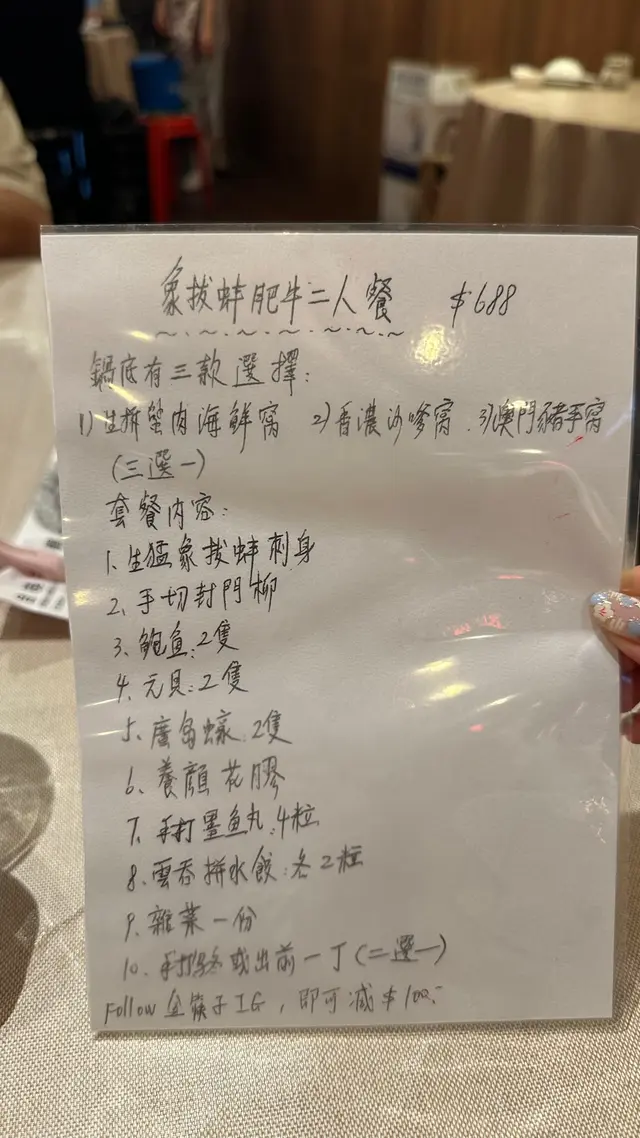 象拔蚌肥牛二人餐 $688
鍋底有三款選擇：
1) 生拆蟹肉海鮮窩 2) 香濃沙嗲窩 3) 澳門豬手窩
(三選一)
套餐內容：
1、生猛象拔蚌刺身
2、手切封門柳
3、鮑魚：2隻
4、元貝：2隻
5、廣島蠔：2隻
6、養顏花膠
7、手打墨魚丸：4粒
8、雲吞拼水餃：各2粒
9、雜菜一份
10、手打麵或出前一丁(二選一)
Follow 金筷子IG，即可減$100.-